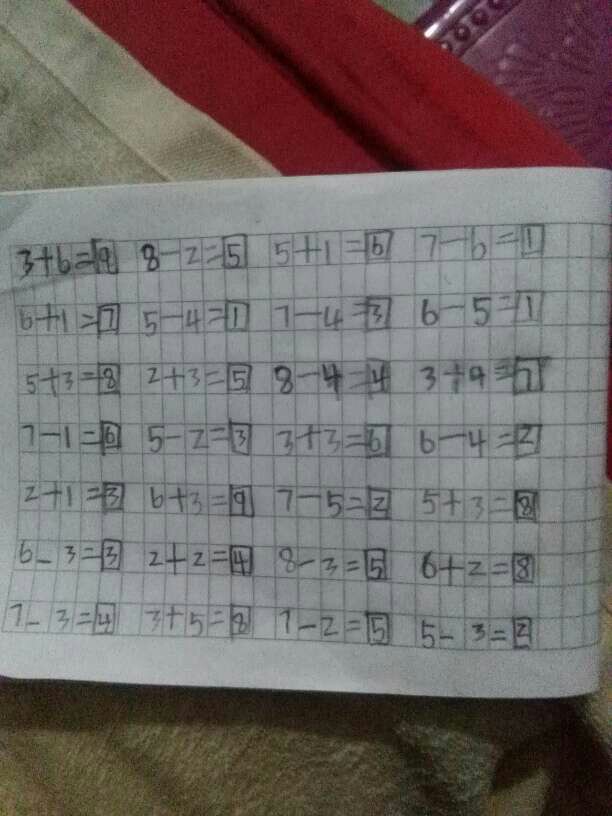 3+6=9 8-2=5 5+1=6 7-6=1
6+1=7 5-4=1 7-4=3 6-5=1
5+3=8 2+3=5 8-4=4 3+4=7
7-1=6 5-2=3 3+3=6 6-4=2
2+1=3 6+3=9 7-5=2 5+3=8
6-3=3 2+2=4 8-3=5 6+2=8
7-3=4 3+5=8 7-2=5 5-3=2